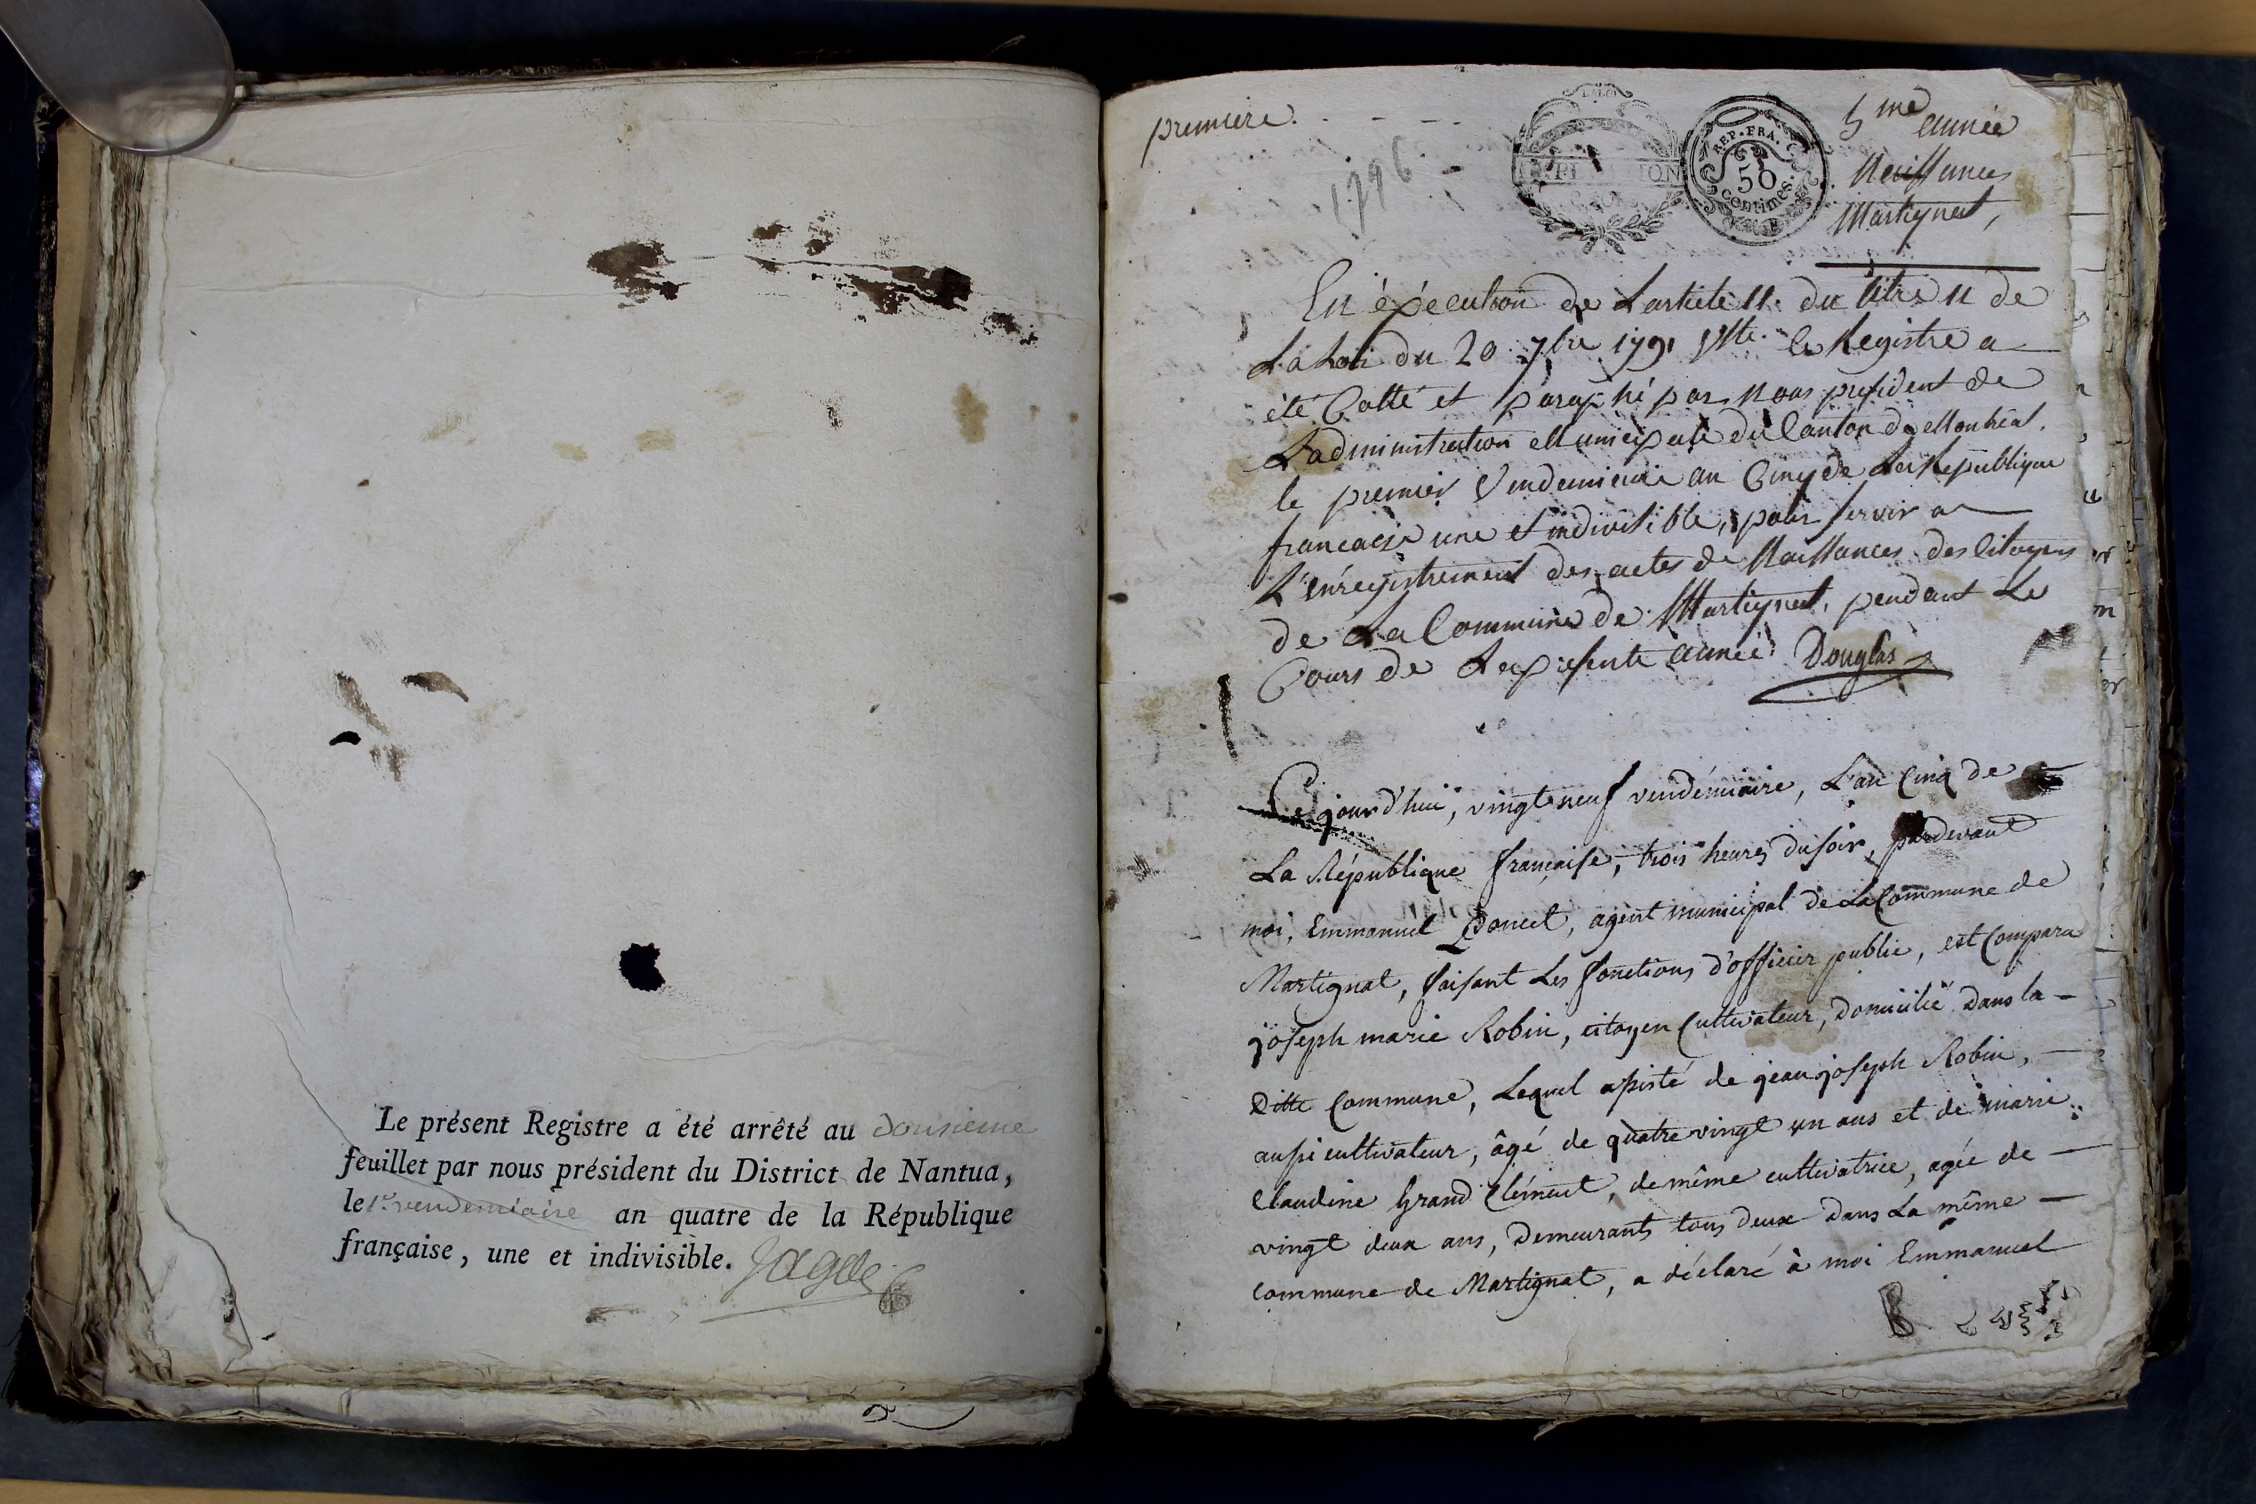 Le présent Registre a été arrêté au dousieme
feuillet par nous président du District de Nantua,
le 1er vendemiaire an quatre de la République
française, une et indivisible.
premiere
1796
REP. FRA.
50
Centimes.
5me année
Naissances
Martignat,
En éxécution de L'article II. du titre II de
La Loi du 20 7bre 179 le Registre a
été Cotté et paraphé par Nous president de
L'administration Municipale du Canton de Montréal.
le premier Vendemiaire an Cinq de La Republique
francaise une et indivisible, pour servir a
L'enregistrement des actes de Naissances des Citoyens
de La Commune de Martignat, pendant Le
Cours de La présente année Douglas
Cejourd'hui, vingt neuf vendémiaire, L'an Cinq de
La République française, trois heures du soir, pardevant
moi, Emmanuel Doncet, agent municipal de La Commune de
Martignat, faisant Les fonctions d'officier public, est Comparu
joseph marie Robin, citoyen Cultivateur, domicilié dans la
ditte Commune, Lequel assisté de jean joseph Robin,
aussi cultivateur, âgé de quatre vingt un ans et de marie
Claudine Grand Clément, de même cultivatrice, agée de
vingt deux ans, demeurants tous deux dans La même
commune de Martignat, a déclaré à moi Emmanuel